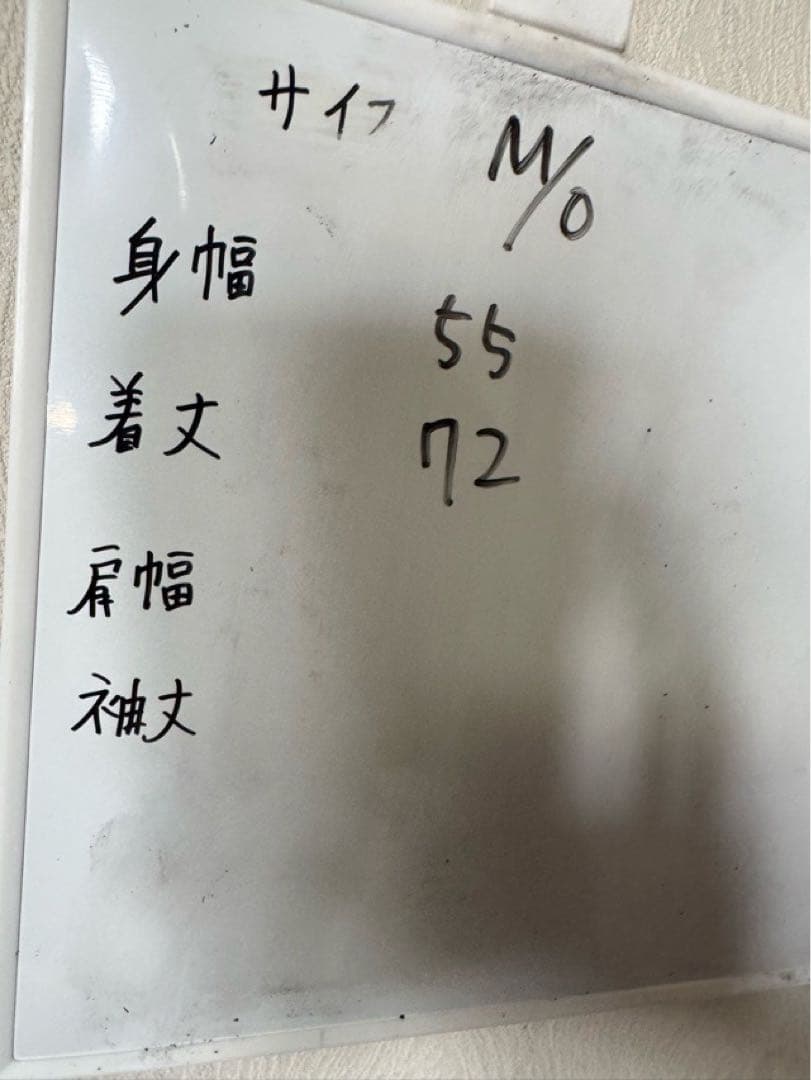 サイフ M/O
身幅 55
着丈 72
肩幅
袖丈